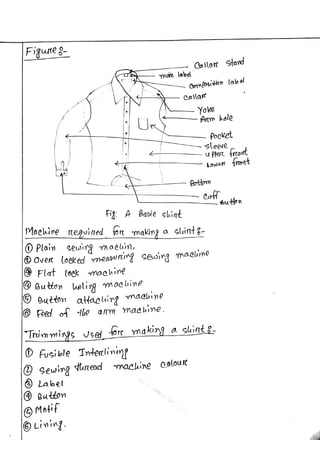 Figure 8-
Collar stand
main label
Composition label
Collar
Yoke
Arm hole
Pocket
Sleeve
Upper front
Lower front
Bottom
Cuff
Button
Fig: A Basic shirt
Machine required for making a shirt 8-
① Plain sewing machin,
② Over locked measuring sewing machine
③ Flat lock machine
④ Button holing machine
⑤ Button attaching machine
⑥ Feed of the arm machine.
Trimmings used for making a shirt 8-
① Fusible Interlining
② Sewing thread machine colour
③ Label
④ Button
⑤ Motif
⑥ Lining.